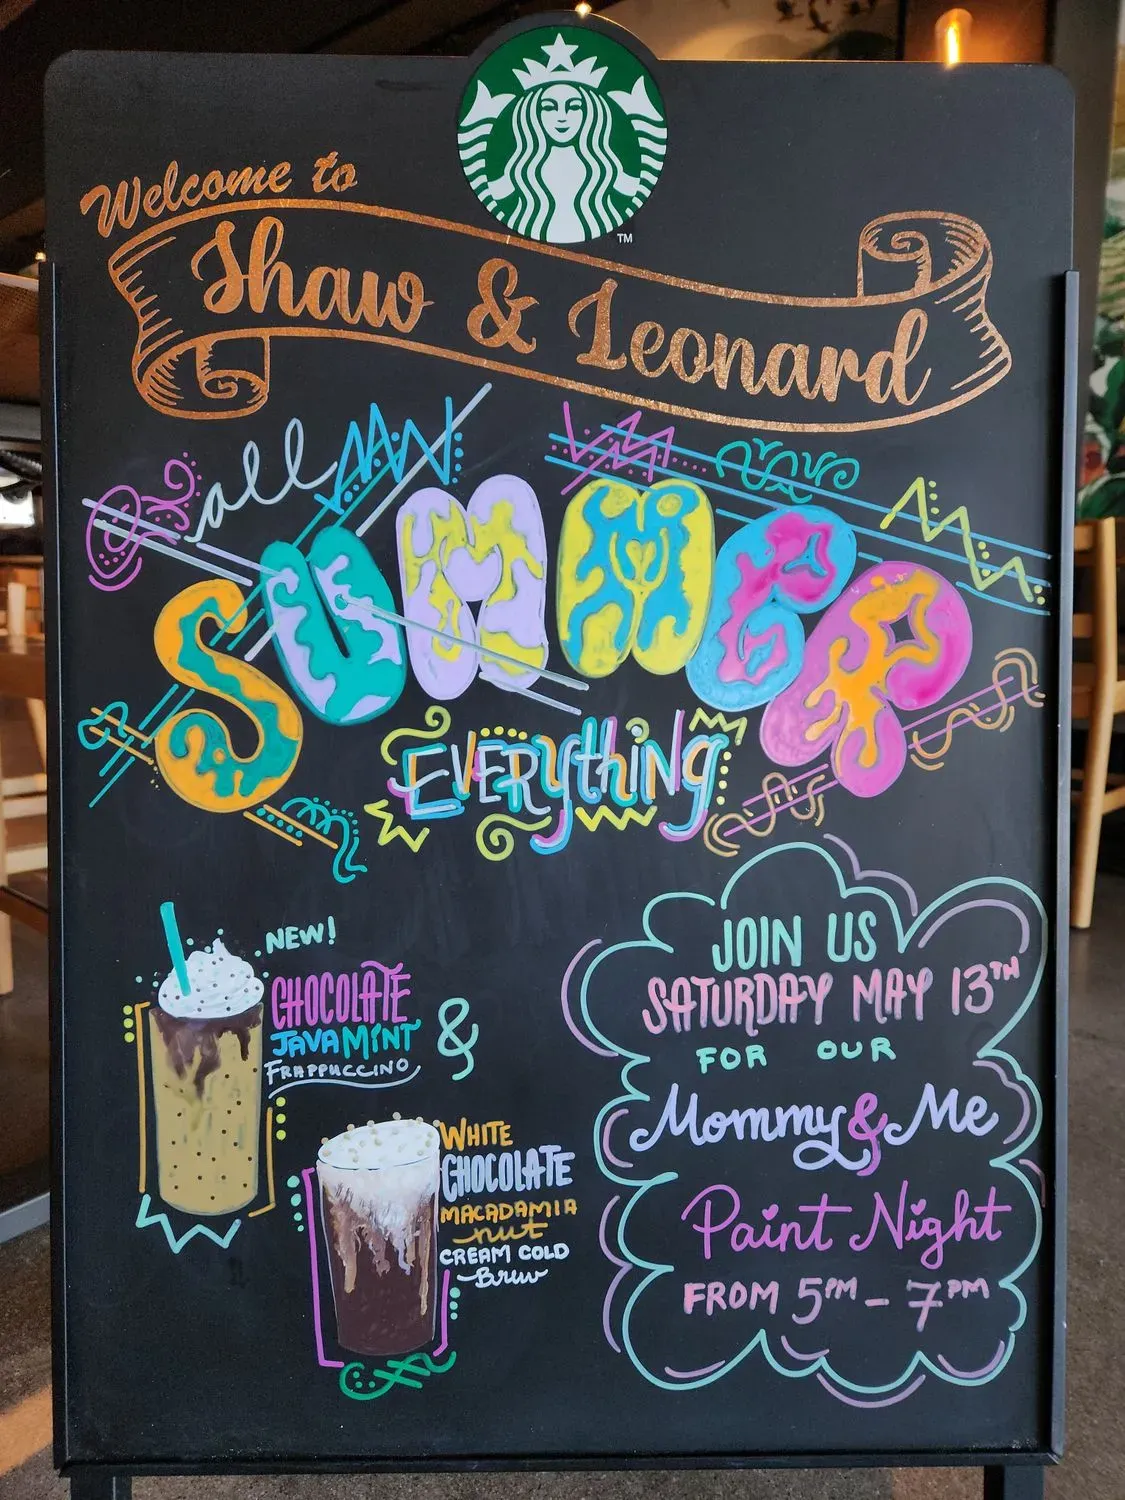 Welcome to
Shaw & Leonard
TM
all
SUMMER
EVERYthiNg
NEW!
CHOCOLATE
JAVA MiNT
FRAPPUCCINO
&
WHITE
CHOCOLATE
MACADAMIA
nut
CREAM COLD
Brew
JOIN US
SATURDAY MAY 13TH
FOR OUR
Mommy & Me
Paint Night
FROM 5PM - 7PM